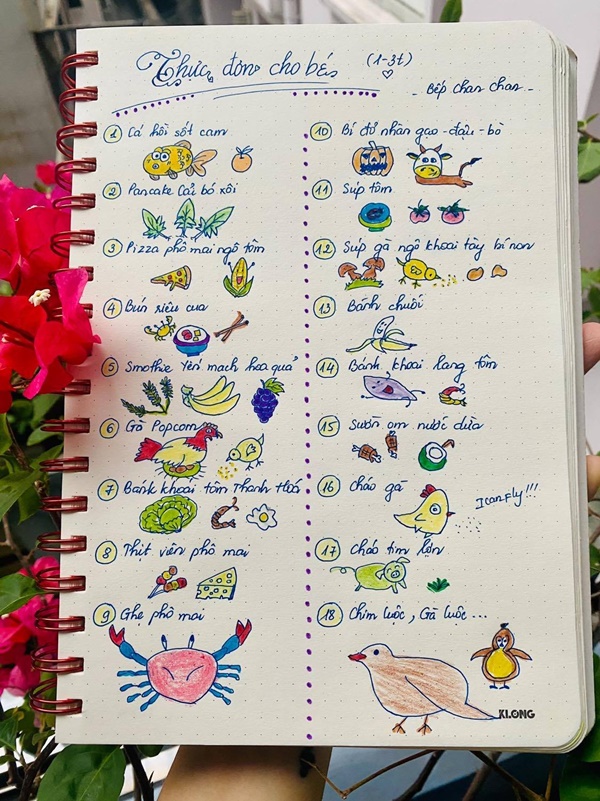 Thực đơn cho bé (1-3t)
- Bếp chan chan -
1 Cá hồi sốt cam
2 Pancake Cải bó xôi
3 Pizza phô mai ngô tôm
4 Bún riêu cua
5 Smothie Yến mạch hoa quả
6 Gà Popcorn
7 Bánh khoai tôm Thanh Hoá
8 Thịt viên phô mai
9 Ghẹ phô mai
10 Bí đỏ nhân gạo - đậu - bò
11 Súp tôm
12 Súp gà ngô khoai tây bí non
13 Bánh chuối
14 Bánh khoai lang tôm
15 Sườn om nước dừa
16 Cháo gà
I can fly!!!
17 Cháo tim lợn
18 Chim luộc, Gà luộc...
KLONG